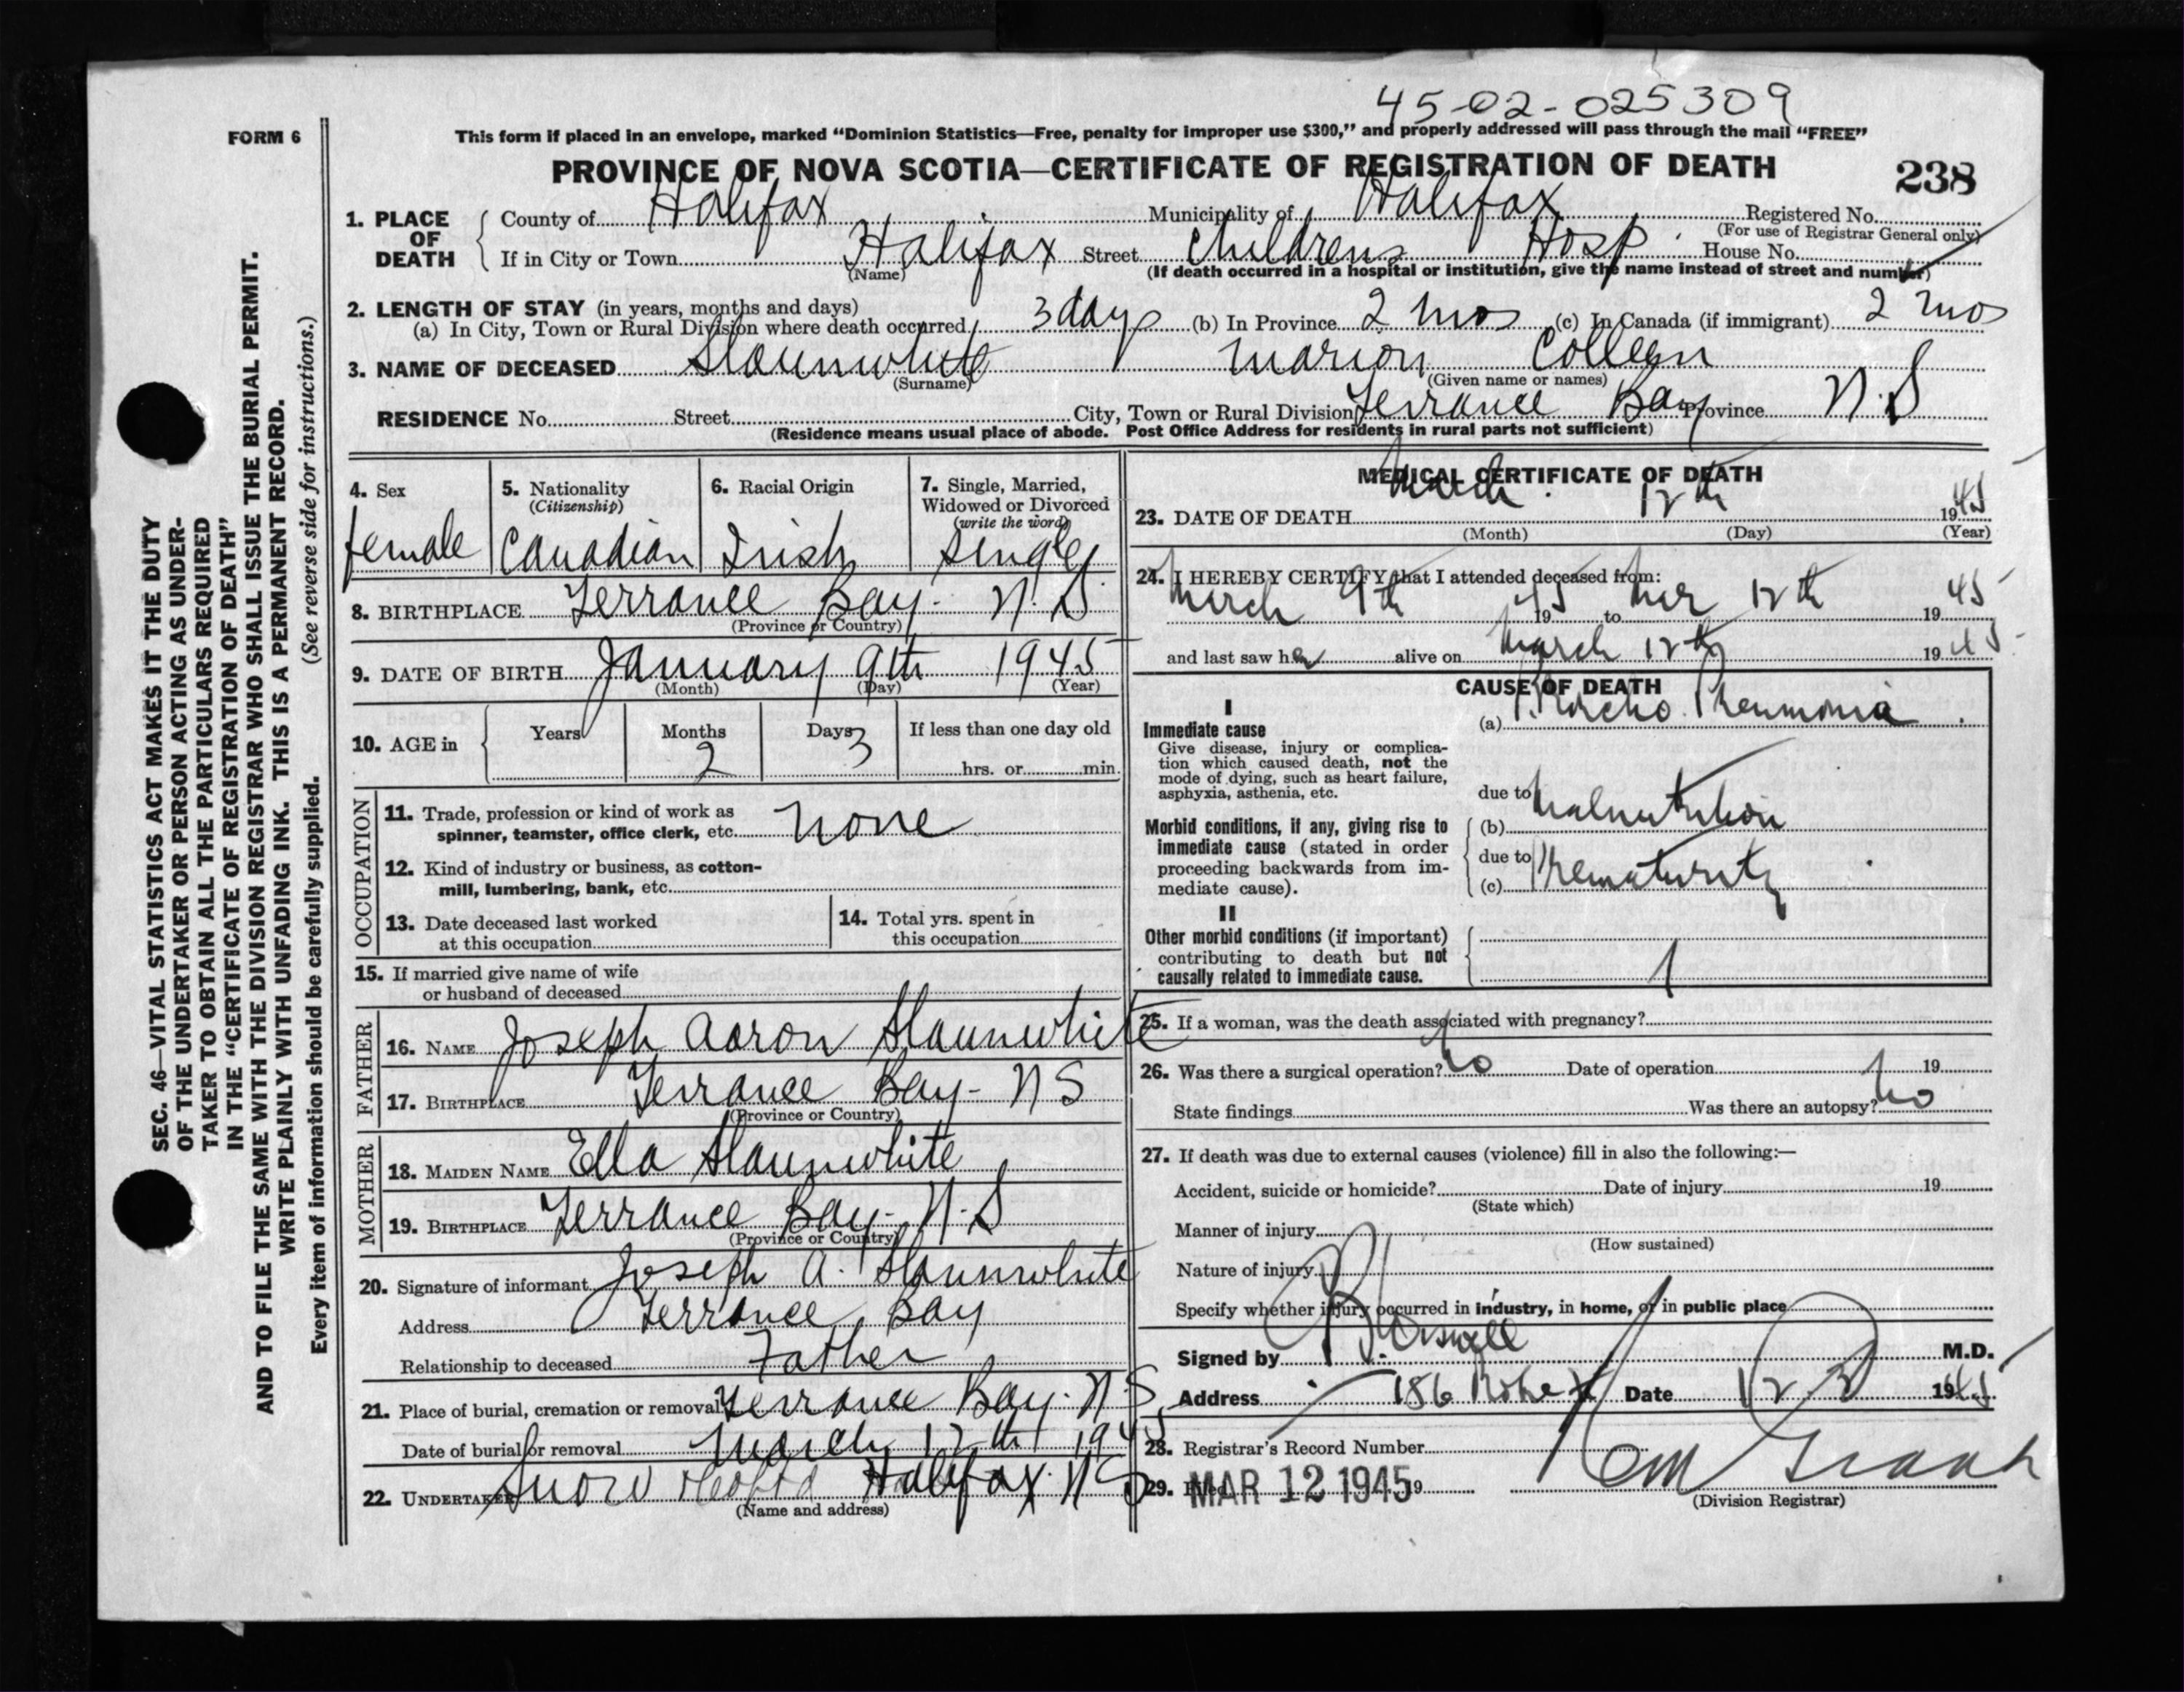 45-02-025309
FORM 6
This form if placed in an envelope, marked “Dominion Statistics—Free, penalty for improper use $300,” and properly addressed will pass through the mail “FREE”
PROVINCE OF NOVA SCOTIA—CERTIFICATE OF REGISTRATION OF DEATH
238
SEC. 46—VITAL STATISTICS ACT MAKES IT THE DUTY
OF THE UNDERTAKER OR PERSON ACTING AS UNDER-
TAKER TO OBTAIN ALL THE PARTICULARS REQUIRED
IN THE “CERTIFICATE OF REGISTRATION OF DEATH”
AND TO FILE THE SAME WITH THE DIVISION REGISTRAR WHO SHALL ISSUE THE BURIAL PERMIT.
WRITE PLAINLY WITH UNFADING INK. THIS IS A PERMANENT RECORD.
Every item of information should be carefully supplied. (See reverse side for instructions.)
1. PLACE OF DEATH County of Halifax Municipality of Halifax Registered No.
(For use of Registrar General only)
If in City or Town Halifax Street Childrens Hosp. House No.
(Name) (If death occurred in a hospital or institution, give the name instead of street and number)
2. LENGTH OF STAY (in years, months and days)
(a) In City, Town or Rural Division where death occurred 3 days (b) In Province 2 mos (c) In Canada (if immigrant) 2 mos
3. NAME OF DECEASED Slaunwhite Marion Colleen
(Surname) (Given name or names)
RESIDENCE No. Street City, Town or Rural Division Terrance Bay Province N.S
(Residence means usual place of abode. Post Office Address for residents in rural parts not sufficient)
4. Sex female
5. Nationality (Citizenship) Canadian
6. Racial Origin Irish
7. Single, Married, Widowed or Divorced (write the word) Single
8. BIRTHPLACE Terrance Bay- N.S
(Province or Country)
9. DATE OF BIRTH January 9th 1945
(Month) (Day) (Year)
10. AGE in Years Months 2 Days 3 If less than one day old
hrs. or min.
OCCUPATION
11. Trade, profession or kind of work as
spinner, teamster, office clerk, etc. none
12. Kind of industry or business, as cotton-
mill, lumbering, bank, etc.
13. Date deceased last worked
at this occupation
14. Total yrs. spent in
this occupation
15. If married give name of wife
or husband of deceased
FATHER
16. NAME Joseph Aaron Slaunwhite
17. BIRTHPLACE Terrance Bay- N S
(Province or Country)
MOTHER
18. MAIDEN NAME Ella Slaunwhite
19. BIRTHPLACE Terrance Bay- N.S
(Province or Country)
20. Signature of informant Joseph A. Slaunwhite
Address Terrance Bay
Relationship to deceased Father
21. Place of burial, cremation or removal Terrance Bay. N.S
Date of burial or removal March 12th 1945
22. UNDERTAKER Snow Halifax. N S
(Name and address)
MEDICAL CERTIFICATE OF DEATH
23. DATE OF DEATH March 12th 1945
(Month) (Day) (Year)
24. I HEREBY CERTIFY that I attended deceased from:
March 9th 1945 to Mar 12th 1945
and last saw her alive on March 12th 1945
CAUSE OF DEATH
I
Immediate cause
Give disease, injury or complica-
tion which caused death, not the
mode of dying, such as heart failure,
asphyxia, asthenia, etc.
(a) Broncho. Pneumonia
due to
Morbid conditions, if any, giving rise to
immediate cause (stated in order
proceeding backwards from im-
mediate cause).
(b) Malnutrition
due to
(c) Prematurity
II
Other morbid conditions (if important)
contributing to death but not
causally related to immediate cause.
25. If a woman, was the death associated with pregnancy?
26. Was there a surgical operation? No Date of operation 19
State findings Was there an autopsy? No
27. If death was due to external causes (violence) fill in also the following:—
Accident, suicide or homicide? Date of injury 19
(State which)
Manner of injury
(How sustained)
Nature of injury
Specify whether injury occurred in industry, in home, or in public place
Signed by M.D.
Address 186 Date 12 1945
28. Registrar's Record Number
29. Filed MAR 12 1945 19
(Division Registrar)